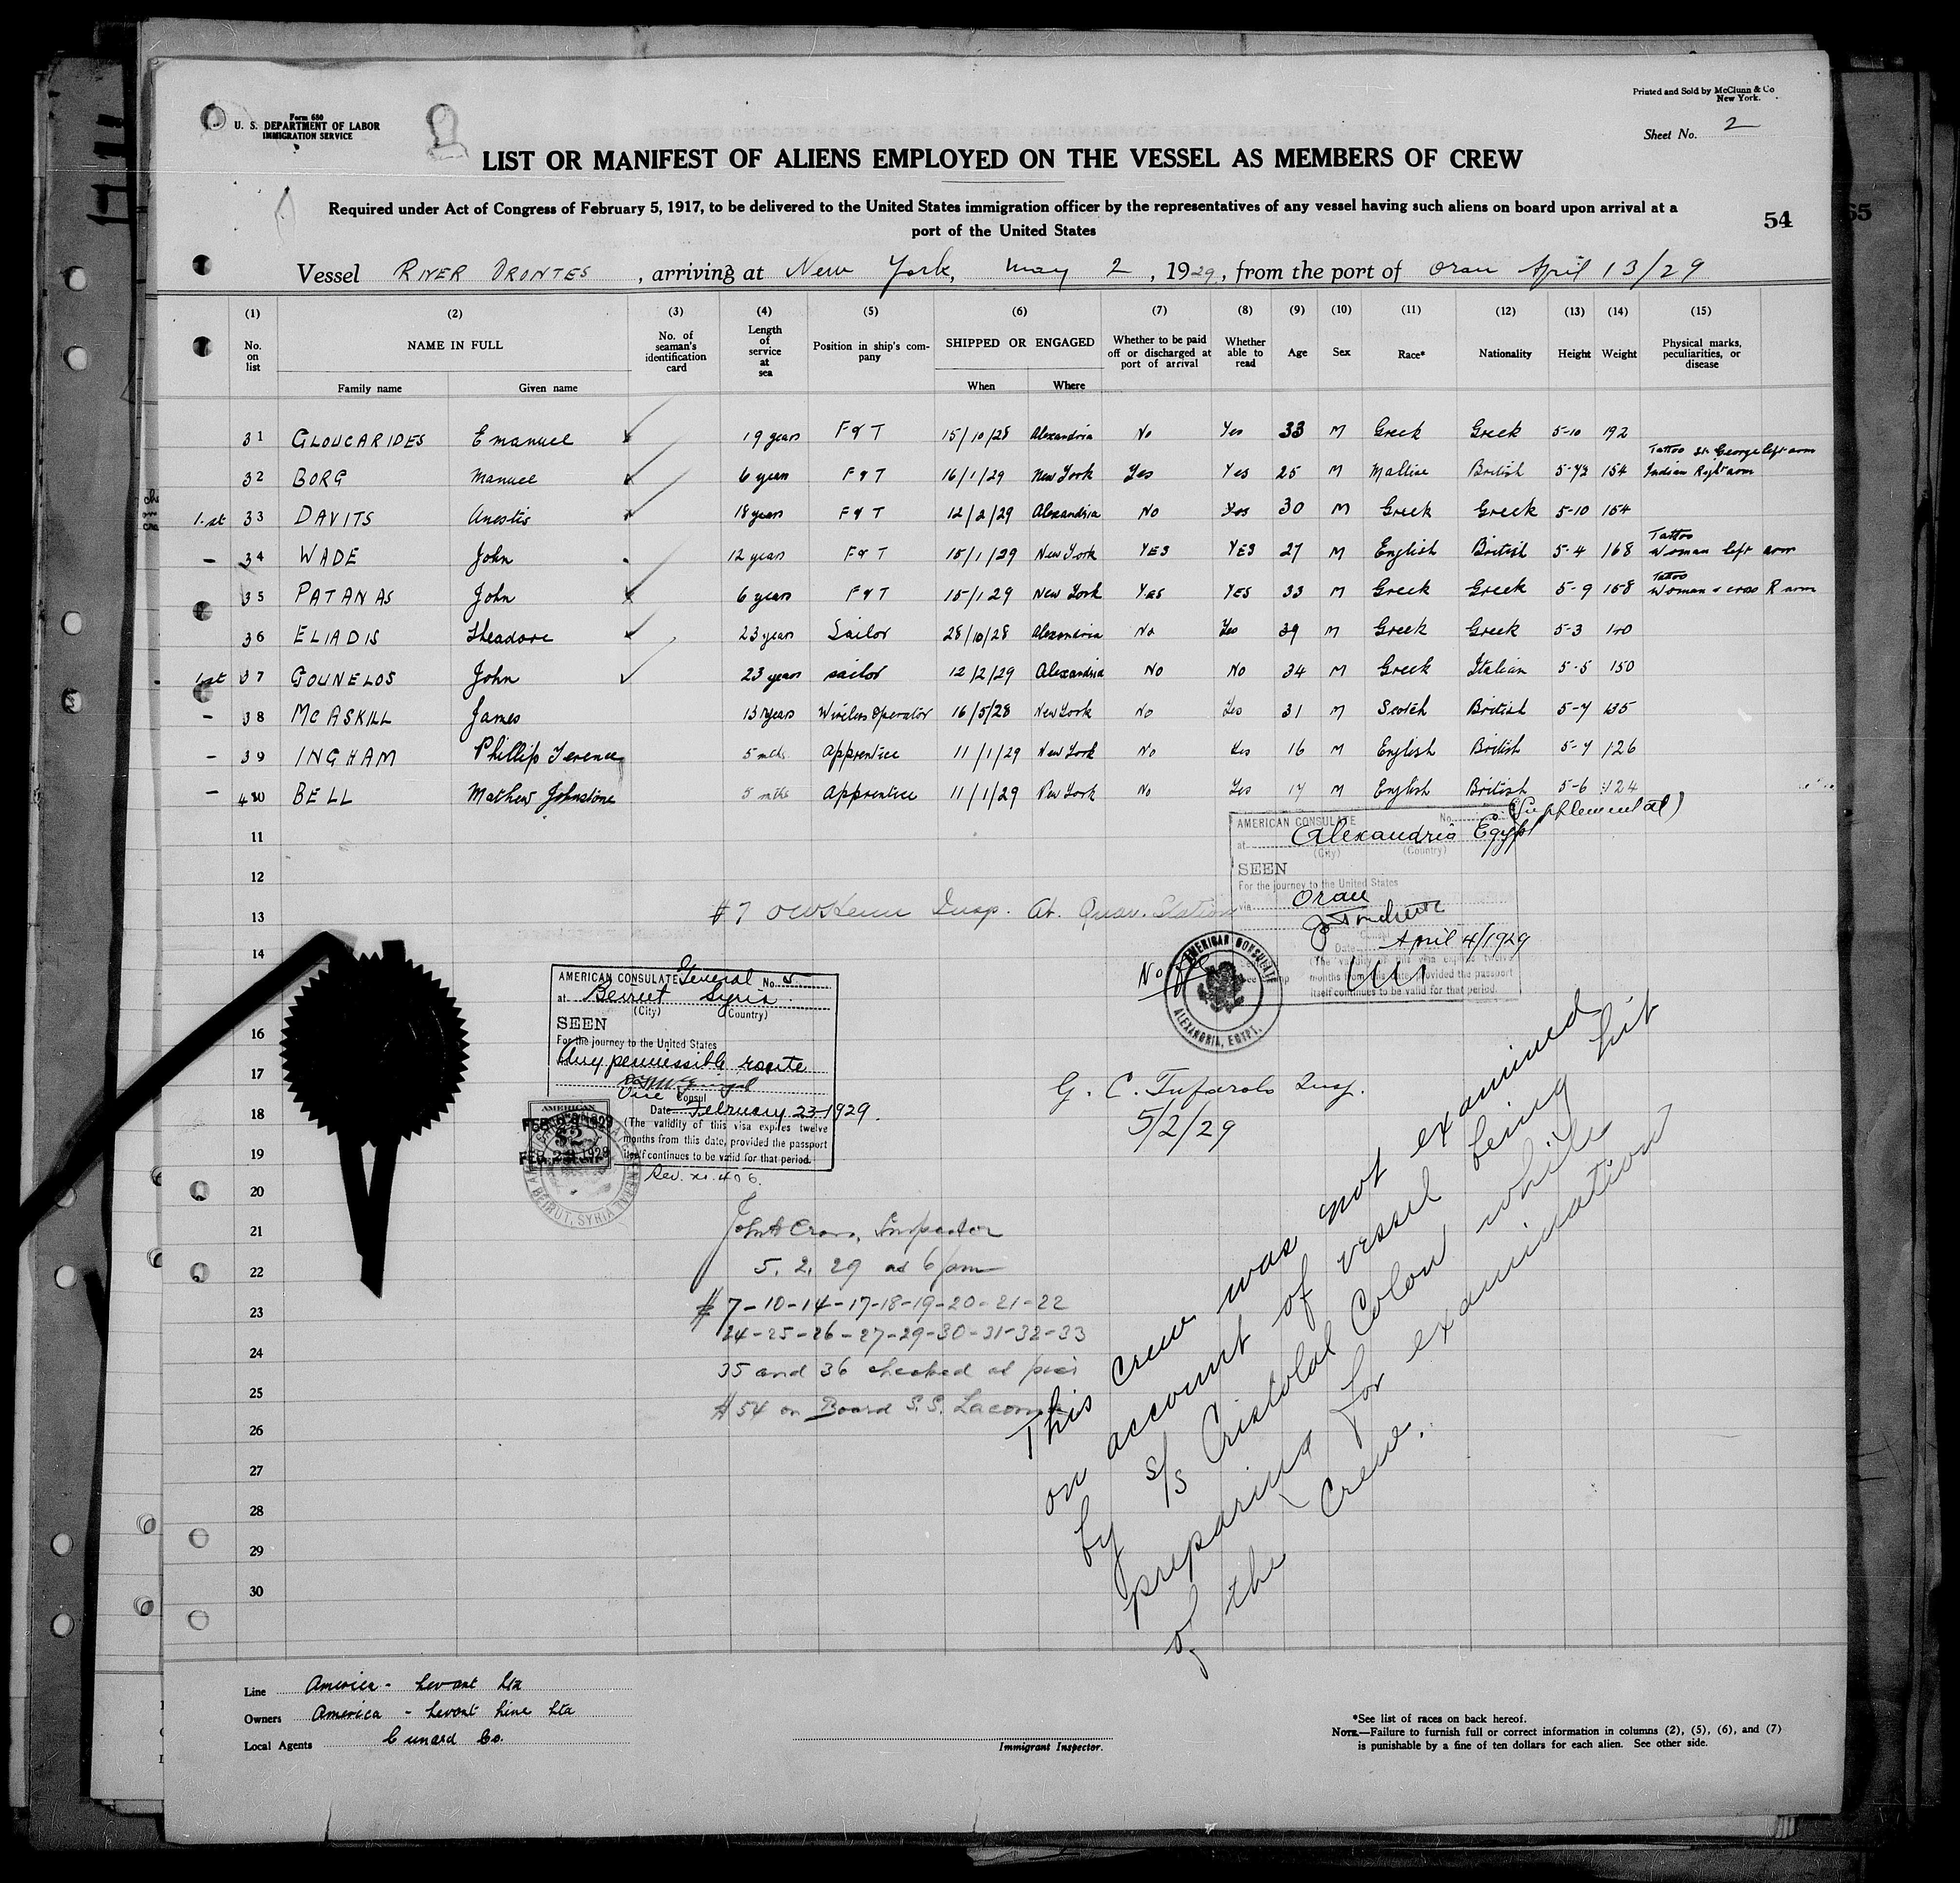 Form 680
U. S. DEPARTMENT OF LABOR
IMMIGRATION SERVICE
Printed and Sold by McClunn & Co
New York.
Sheet No. 2
LIST OR MANIFEST OF ALIENS EMPLOYED ON THE VESSEL AS MEMBERS OF CREW
Required under Act of Congress of February 5, 1917, to be delivered to the United States immigration officer by the representatives of any vessel having such aliens on board upon arrival at a
port of the United States
54
65
Vessel RIVER ORONTES, arriving at New York, May 2, 1929, from the port of Oran April 13/29
(1) (2) (3) (4) (5) (6) (7) (8) (9) (10) (11) (12) (13) (14) (15)
No. on list NAME IN FULL No. of seaman's identification card Length of service at sea Position in ship's company SHIPPED OR ENGAGED Whether to be paid off or discharged at port of arrival Whether able to read Age Sex Race* Nationality Height Weight Physical marks, peculiarities, or disease
Family name Given name When Where
31 GLOUCARIDES Emanuel 19 years F & T 15/10/28 Alexandria No Yes 33 M Greek Greek 5-10 192
32 BORG Manuel 6 years F & T 16/1/29 New York Yes Yes 25 M Maltise British 154 Tattoo St. George left arm Indian Right arm
1st 33 DAVITS Anestis 18 years F & T 12/2/29 Alexandria No Yes 30 M Greek Greek 5-10 164
- 34 WADE John 12 years F & T 15/1/29 New York YES YES 27 M English British 5-4 168 Tattoo Woman left arm
35 PATANAS John 6 years F & T 15/1 29 New York YES YES 33 M Greek Greek 5-9 158 Tattoo Woman & cross R arm
36 ELIADIS Theadore 23 years Sailor 28/10/28 Alexandria No Yes 39 M Greek Greek 5-3 140
1st 37 GOUNELOS John 23 years sailor 12/2/29 Alexandria No No 34 M Greek Italian 5-5 150
- 38 MC ASKILL James 13 years Wireless Operator 16/5/28 New York No Yes 31 M Scotch British 5-7 135
- 39 INGHAM Phillip Terence 5 mths Apprentice 11/1/29 New York No Yes 16 M English British 5-7 126
- 40 BELL Mathew Johnstone 5 mths Apprentice 11/1/29 New York No Yes 17 M English British 5-6 124
11
12
13
14
16
17
18
19
20
21
22
23
24
25
26
27
28
29
30
(Supplemental)
AMERICAN CONSULATE No.
at Alexandria Egypt
(City) (Country)
SEEN
For the journey to the United States
via Oran
Date April 4/1929
(The validity of this visa expires twelve
months from this date, provided the passport
itself continues to be valid for that period.
No
AMERICAN CONSULATE
ALEXANDRIA, EGYPT.
#7 Insp. at Quar. Station
AMERICAN CONSULATE General No. 5
at Beirut Syria
(City) (Country)
SEEN
For the journey to the United States
Any permissible route
Vice Consul
Date February 23 1929.
(The validity of this visa expires twelve
months from this date, provided the passport
itself continues to be valid for that period.
AMERICAN
FEB 23 1929
$2
FEB 23 1929
BEIRUT, SYRIA
G. C. Tufarolo Insp.
5/2/29
John A Cross, Inspector
5. 2. 29 at 6 pm
# 7-10-14-17-18-19-20-21-22
24-25-26-27-29-30-31-32-33
35 and 36 checked at pier
#54 on Board S.S.
This crew was not examined
on account of vessel being hit
by s/s Cristobal Colon while
preparing for examination
of the crew.
Line America - Levant Ltd
Owners America - Levant Line Ltd
Local Agents Cunard Co.
Immigrant Inspector.
*See list of races on back hereof.
NOTE.—Failure to furnish full or correct information in columns (2), (5), (6), and (7)
is punishable by a fine of ten dollars for each alien. See other side.